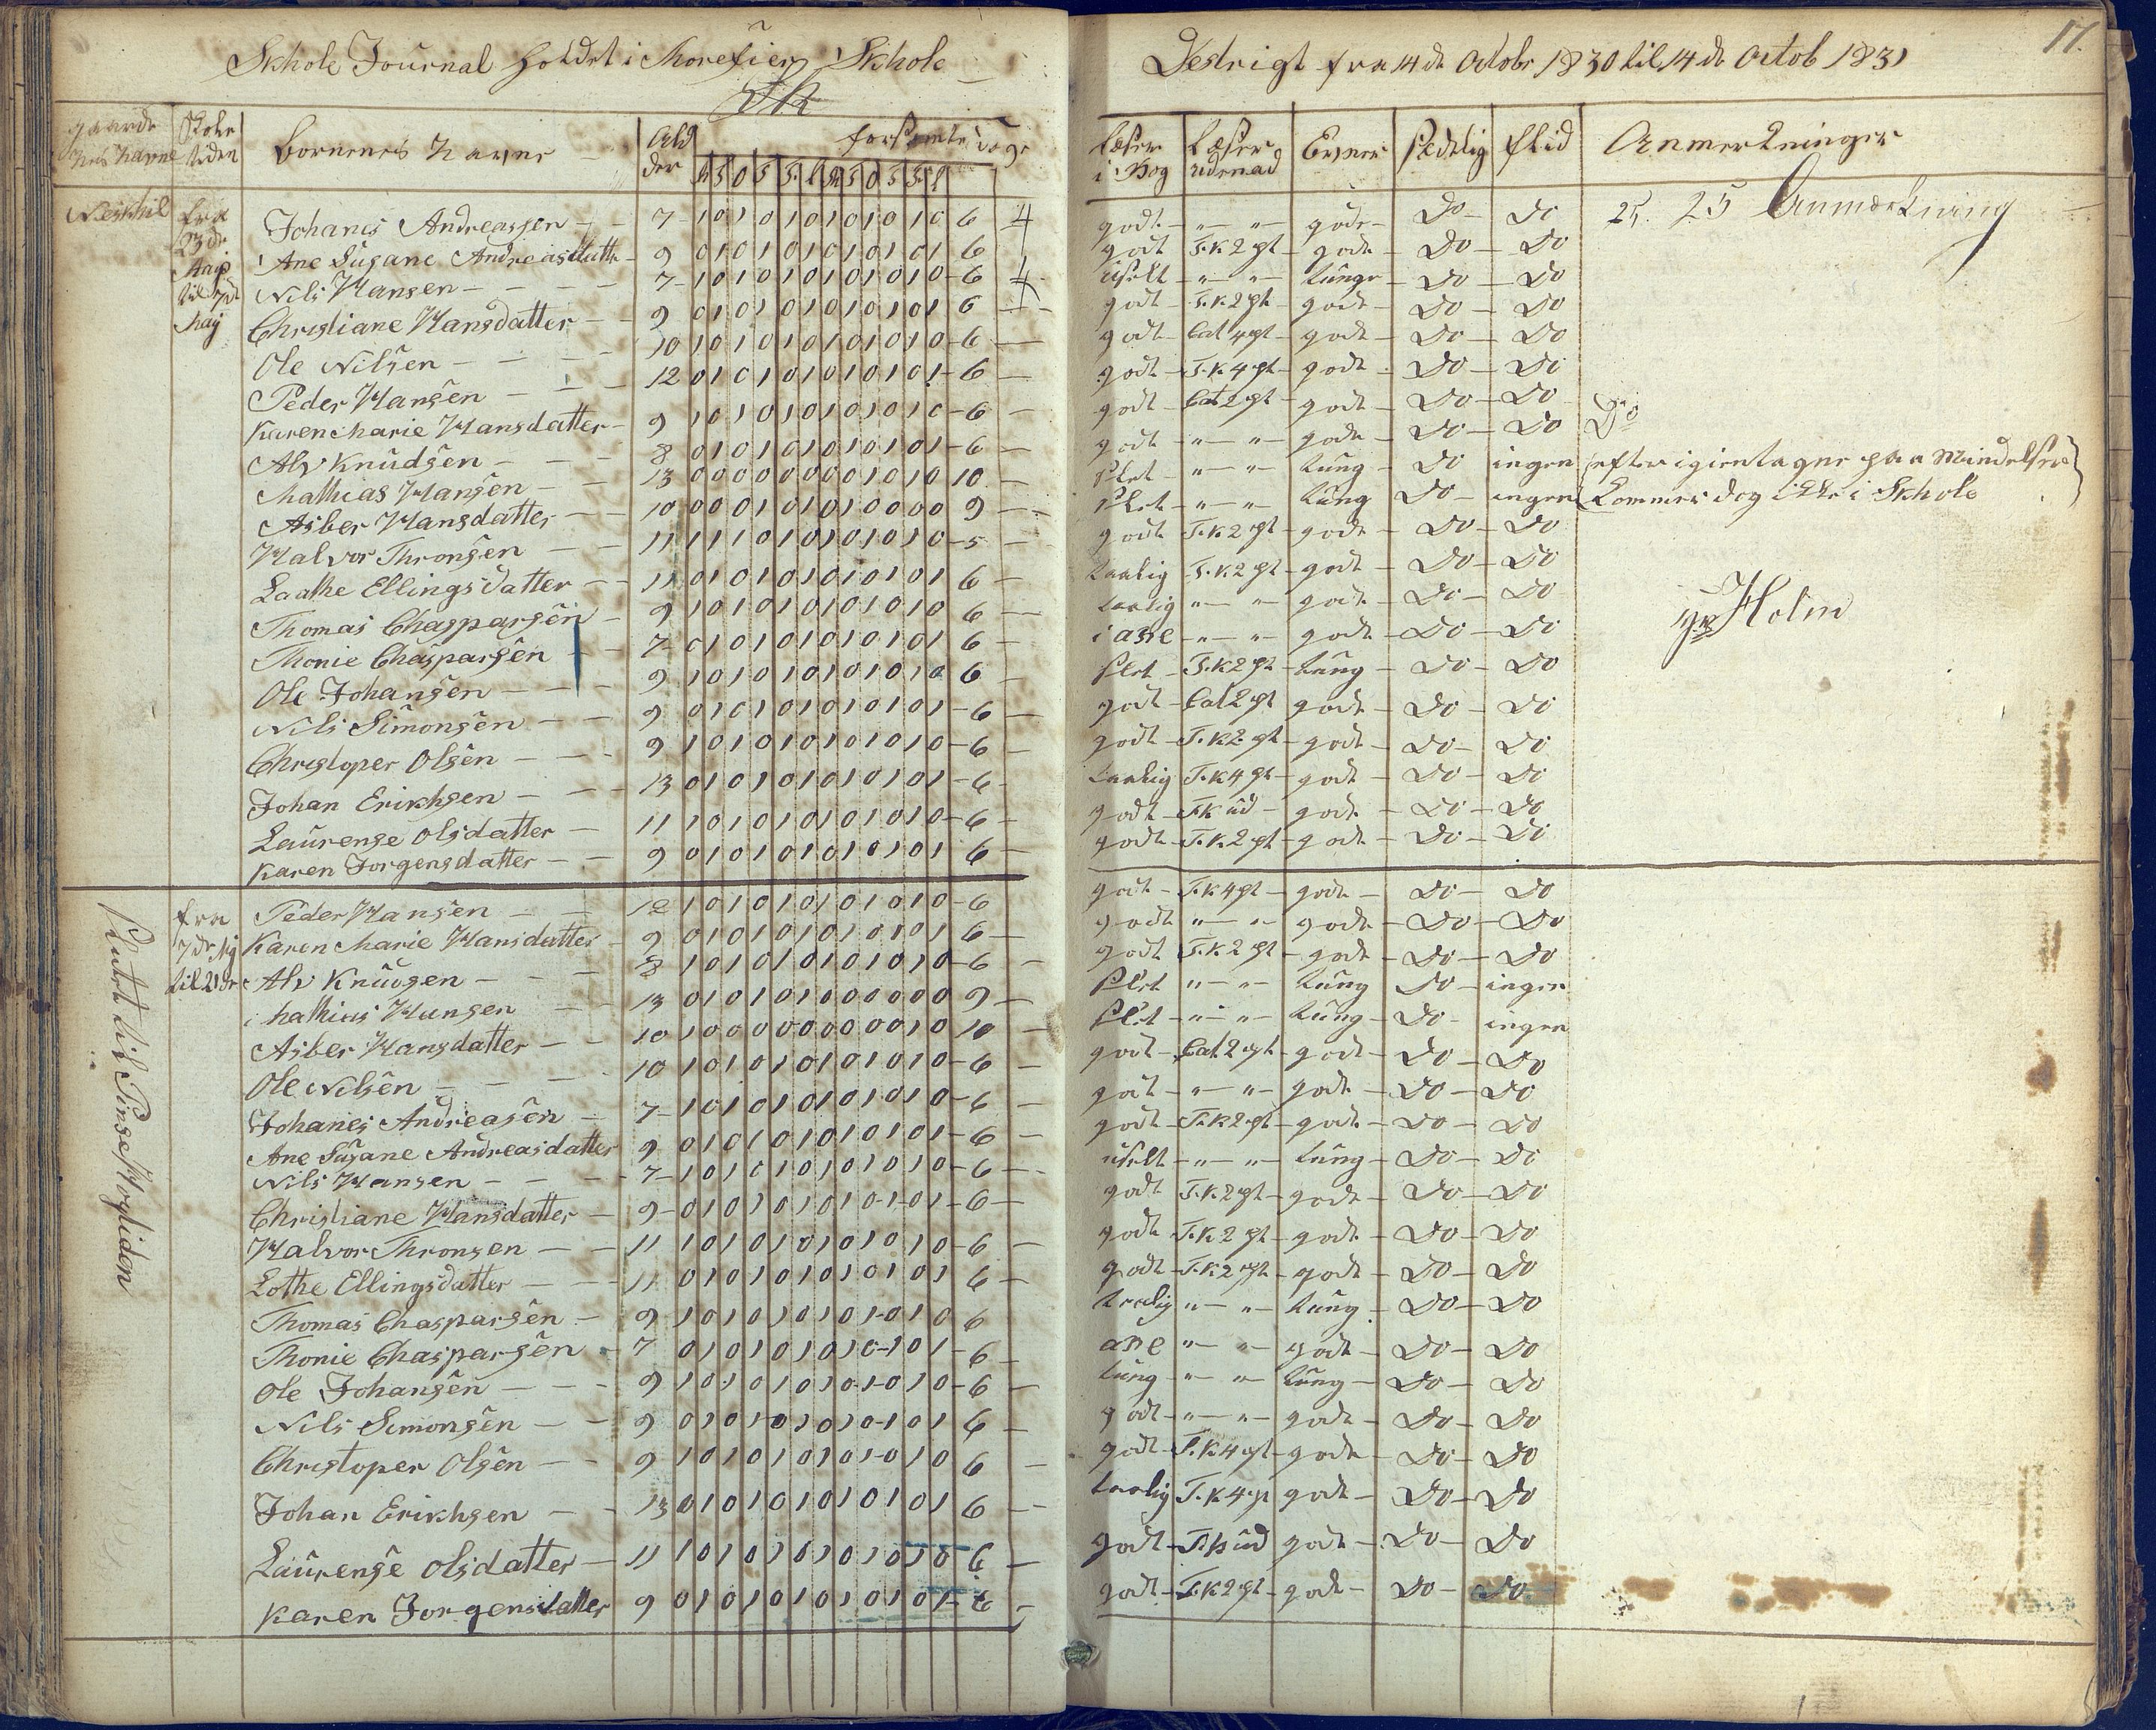 Skhole Journal holdet i Morefier Skhole
Destrigt fra 14 de Octobr 1830 til 14 de Octob 1831
17.
gaarde
nes Navne
Skole
tiden
Bornenes Navne
Ald
der
forsømte dage
Læser
i Bog
Læser
udenad
Evner
sædelig
flid
Anmerkninger
Neskhil
fra
23de
til 7de
Maij
Johanes Andreassen 7 1 0 1 0 1 0 1 0 1 0 1 0 6 godt " " gode Do Do 25 Anmærkning
Ane Susane Andreasdatter 9 0 1 0 1 0 1 0 1 0 1 0 1 6 godt T.K 2 pt gode Do Do
Nils Hansen 7 1 0 1 0 1 0 1 0 1 0 1 0 6 uselt " " tunge Do Do
Christiane Hansdatter 9 0 1 0 1 0 1 0 1 0 1 0 1 6 godt T.K 2 pt gode Do Do
Ole Nilsen 10 1 0 1 0 1 0 1 0 1 0 1 0 6 godt Cat 4 pt gode Do Do
Peder Hansen 12 0 1 0 1 0 1 0 1 0 1 0 1 6 godt T.K 4 pt gode Do Do
Karen Marie Hansdatter 9 1 0 1 0 1 0 1 0 1 0 1 0 6 godt Cat 2 pt gode Do Do
Alv Knudsen 8 0 1 0 1 0 1 0 1 0 1 0 1 6 godt " " gode Do Do Do
Mathias Hansen 13 0 0 0 0 0 0 0 0 1 0 1 0 10 slet " " tung Do ingen efter igientagne paa Mindelser
Asber Hansdatter 10 0 0 0 1 0 1 0 1 0 0 0 0 9 slet " " tung Do ingen kommer dog ikke i Skhole
Halvor Thronsen 11 1 1 1 0 1 0 1 0 1 0 1 0 5 godt T.K 2 pt gode Do Do
Laathe Ellings datter 11 0 1 0 1 0 1 0 1 0 1 0 1 6 taalig T.K 2 pt godt Do Do
Thomas Chasparsen 9 1 0 1 0 1 0 1 0 1 0 1 0 6 taalig " " gode Do Do
Thonie Chasparsen 7 0 1 0 1 0 1 0 1 0 1 0 1 6 i abe " " gode Do Do
Ole Johansen 9 1 0 1 0 1 0 1 0 1 0 1 0 6 slet T.K 2 pt tung Do Do
Nils Simonsen 9 0 1 0 1 0 1 0 1 0 1 0 1 6 godt Cat 2 pt gode Do Do
Christoper Olsen 9 1 0 1 0 1 0 1 0 1 0 1 0 6 godt T.K 2 pt gode Do Do
Johan Erikhsen 13 0 1 0 1 0 1 0 1 0 1 0 1 6 taalig T.K 4 pt gode Do Do
Laurense Olsdatter 11 1 0 1 0 1 0 1 0 1 0 1 0 6 godt T.K ud gode Do Do
Karen Jorgensdatter 9 0 1 0 1 0 1 0 1 0 1 0 1 6 godt T.K 2 pt gode Do Do
Holm
fra
7de Mj
til 21de
Peder Hansen 12 1 0 1 0 1 0 1 0 1 0 1 0 6 godt T.K 4 pt gode Do Do
Karen Marie Hansdatter 9 0 1 0 1 0 1 0 1 0 1 0 1 6 godt " " gode Do Do
Alv Knudsen 8 1 0 1 0 1 0 1 0 1 0 1 0 6 godt T.K 2 pt gode Do Do
Mathias Hansen 13 0 1 0 1 0 1 0 0 0 0 0 0 9 slet " " tung Do ingen
Asber Hansdatter 10 1 0 0 0 0 0 0 0 0 0 1 0 10 slet " " tung Do ingen
Ole Nilsen 10 1 0 1 0 1 0 1 0 1 0 1 0 6 godt Cat 2 pt gode Do Do
Johanes Andreasen 7 1 0 1 0 1 0 1 0 1 0 1 0 6 godt " " gode Do Do
Ane Susane Andreasdatter 9 0 1 0 1 0 1 0 1 0 1 0 1 6 godt T.K 2 pt gode Do Do
Nils Hansen 7 1 0 1 0 1 0 1 0 1 0 1 0 6 uselt " " tung Do Do
Christiane Hansdatter 9 0 1 0 1 0 1 0 1 0 1 0 1 6 godt T.K 2 pt gode Do Do
Halvor Thronsen 11 1 0 1 0 1 0 1 0 1 0 1 0 6 godt T.K 2 pt gode Do Do
Lothe Ellingsdatter 11 0 1 0 1 0 1 0 1 0 1 0 1 6 godt T.K 2 pt gode Do Do
Thomas Chasparsen 9 1 0 1 0 1 0 1 0 1 0 1 0 6 taalig " " tung Do Do
Thonie Chasparsen 7 0 1 0 1 0 1 0 1 0 1 0 1 6 abe " " gode Do Do
Ole Johansen 9 1 0 1 0 1 0 1 0 1 0 1 0 6 tung " " tung Do Do
Nils Simonsen 9 0 1 0 1 0 1 0 1 0 1 0 1 6 godt " " gode Do Do
Christoper Olsen 9 1 0 1 0 1 0 1 0 1 0 1 0 6 godt T.K 4 pt gode Do Do
Johan Erikhsen 13 0 1 0 1 0 1 0 1 0 1 0 1 6 taalig T.K 4 p gode Do Do
Laurense Olsdatter 11 1 0 1 0 1 0 1 0 1 0 1 0 6 godt T.K ud gode Do Do
Karen Jorgensdatter 9 0 1 0 1 0 1 0 1 0 1 0 1 6 godt T.K 2 pt gode Do Do